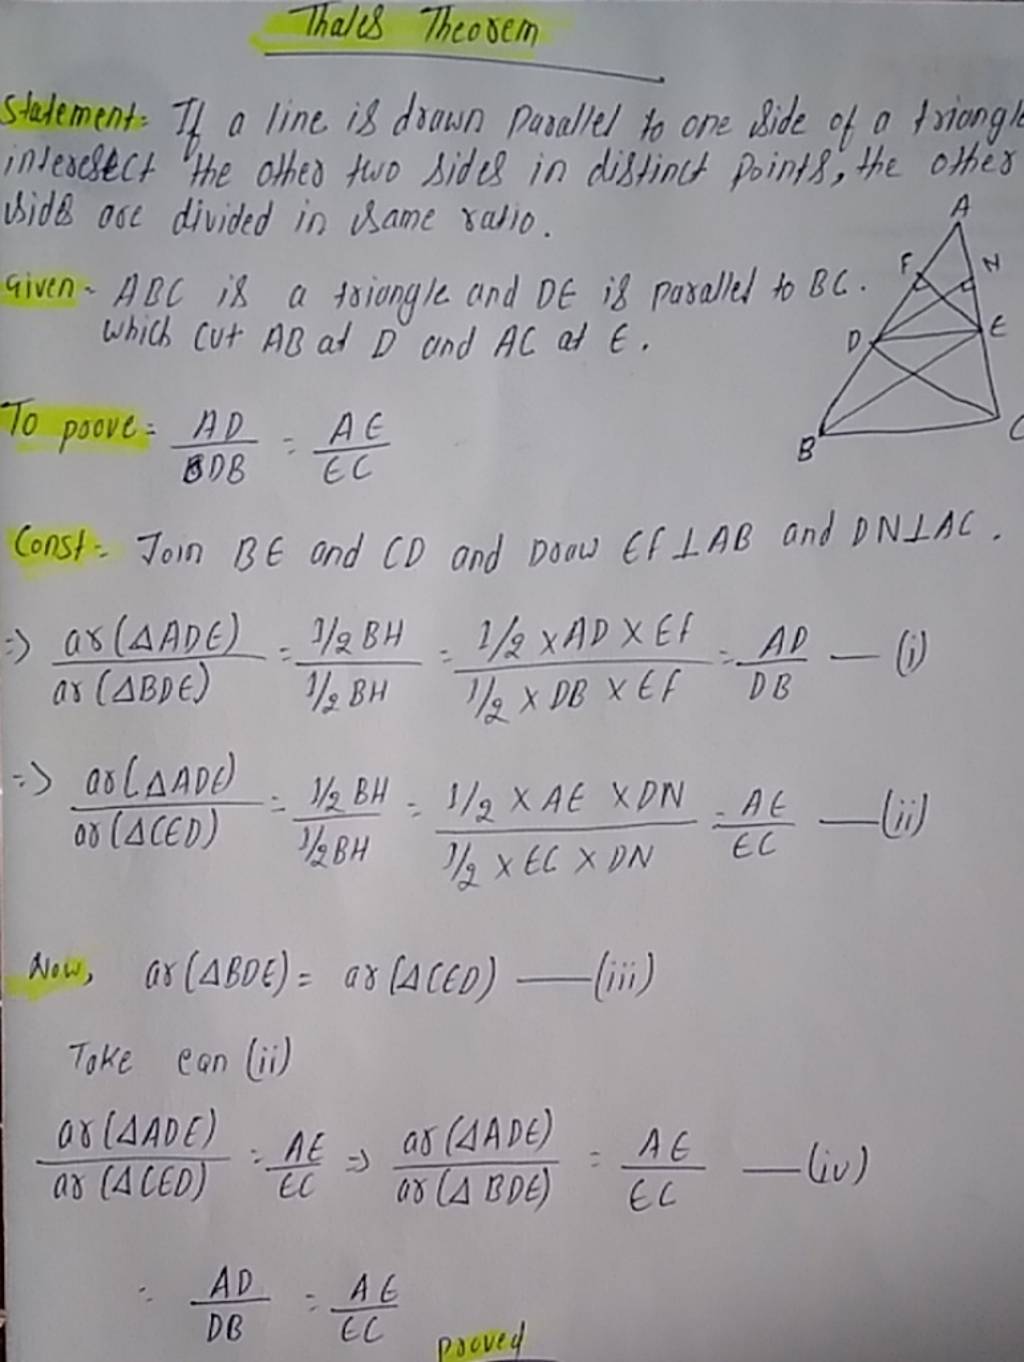 Thales Theorem
Statement= If a line is drawn parallel to one side of a triangle
intersect the other two sides in distinct points, the other
side are divided in same ratio.
Given - ABC is a triangle and DE is parallel to BC.
which cut AB at D and AC at E.
A
F N
D E
B C
To proove = AD/DB = AE/EC
Const = Join BE and CD and Draw EF⊥AB and DN⊥AC.
=> ar(ΔADE)/ar(ΔBDE) = 1/2 BH / 1/2 BH = 1/2 × AD × EF / 1/2 × DB × EF = AD/DB — (i)
=> ar(ΔADE)/ar(ΔCED) = 1/2 BH / 1/2 BH = 1/2 × AE × DN / 1/2 × EC × DN = AE/EC — (ii)
Now, ar(ΔBDE) = ar(ΔCED) — (iii)
Take eqn (ii)
ar(ΔADE)/ar(ΔCED) = AE/EC => ar(ΔADE)/ar(ΔBDE) = AE/EC — (iv)
= AD/DB = AE/EC
prooved